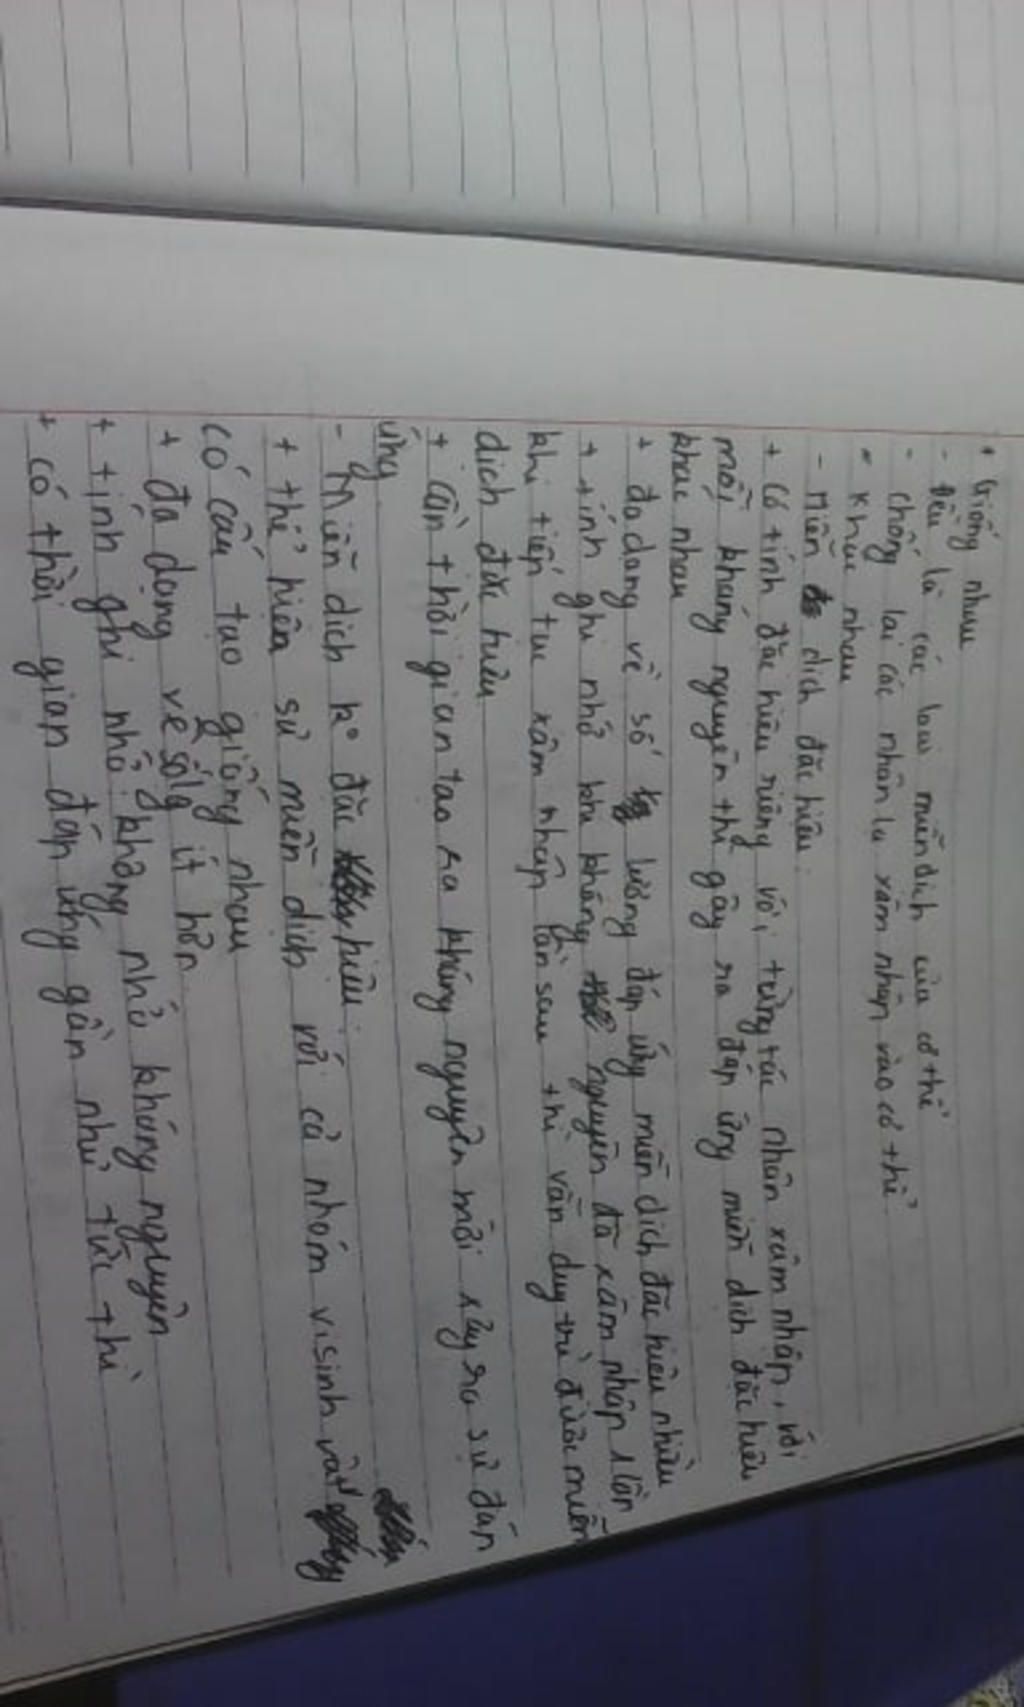 + Giống nhau
- Đều là các loại miễn dịch của cơ thể
- chống lại các nhân lạ xâm nhập vào cơ thể.
- Khác nhau
- Miễn dịch đặc hiệu.
+ Có tính đặc hiệu riêng với từng tác nhân xâm nhập, với
mỗi kháng nguyên thì gây ra đáp ứng miễn dịch đặc hiệu
khác nhau
+ đa dạng về số lượng đáp ứng miễn dịch đặc hiệu nhiều
+ tính ghi nhớ khi kháng nguyên đã xâm nhập 1 lần
khi tiếp tục xâm nhập lần sau thì vẫn duy trì được miễn
dịch đặc hiệu
+ Cần thời gian tạo ra kháng nguyên mới xảy ra sự đáp
ứng
- Miễn dịch ko đặc hiệu:
+ thể hiện sự miễn dịch với cả nhóm vi sinh vật
có cấu tạo giống nhau
+ đa dạng về số lg ít hơn
+ tính ghi nhớ: không nhớ kháng nguyên
+ có thời gian đáp ứng gần như tức thì